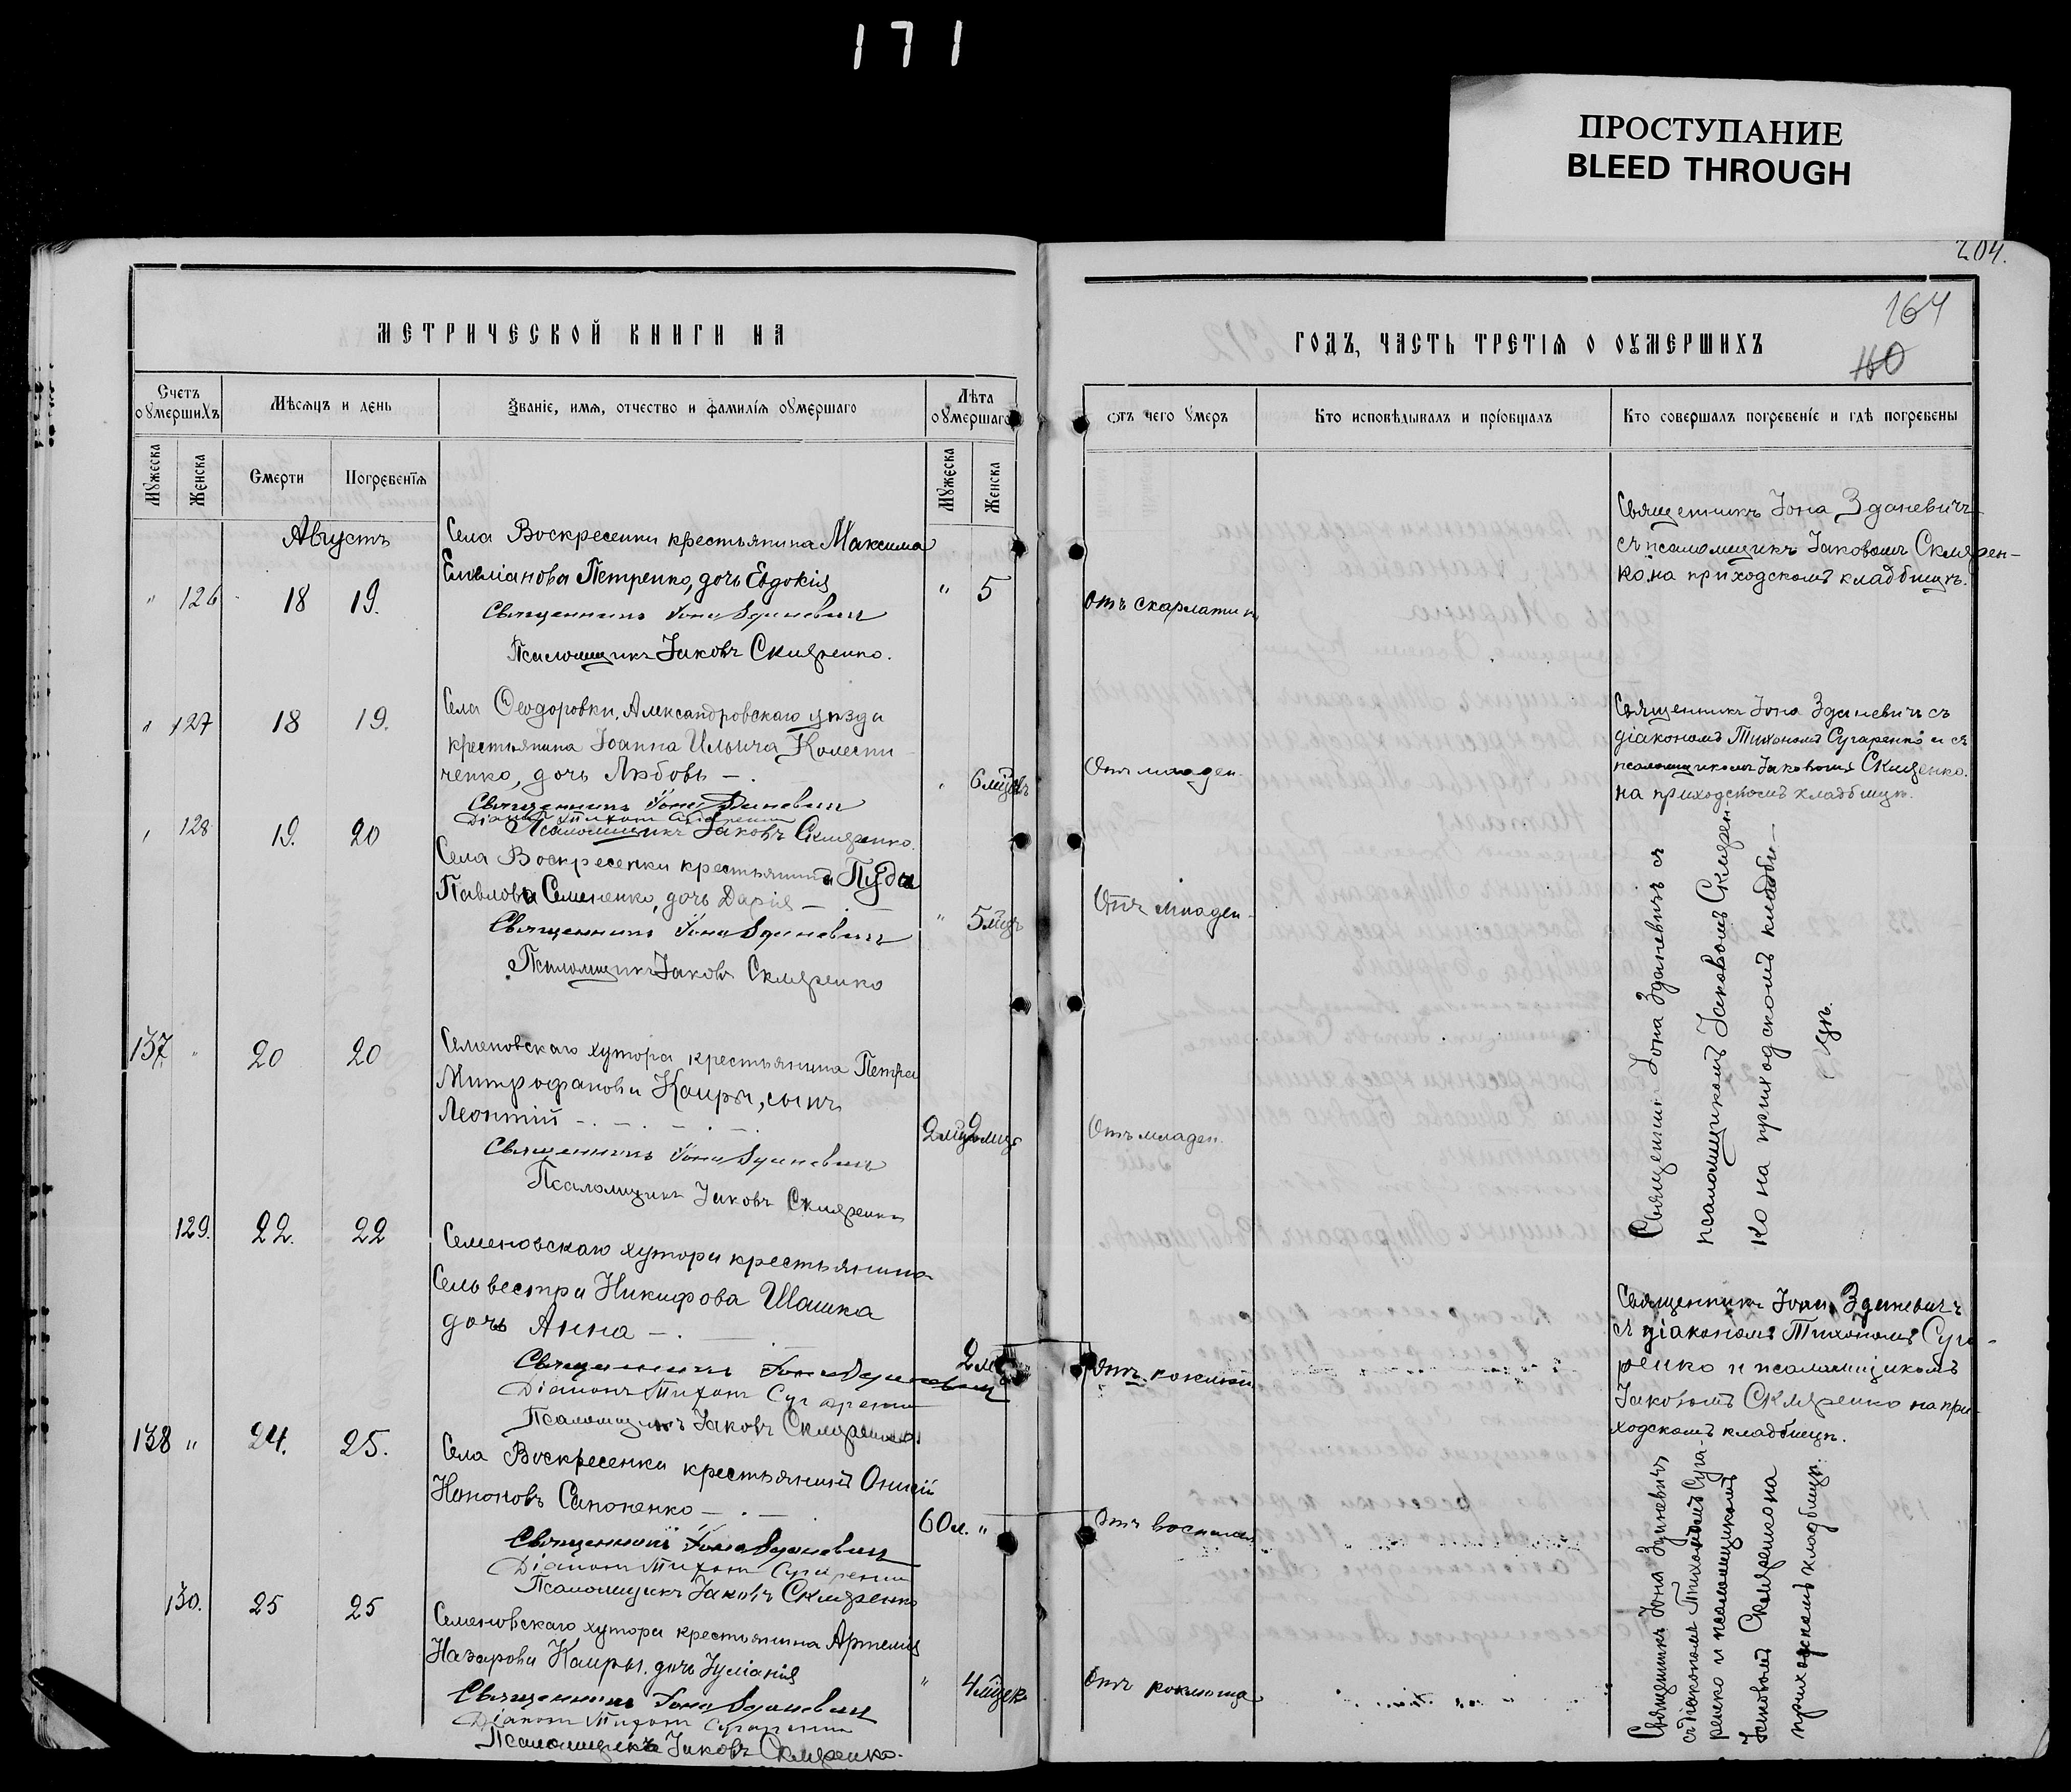 171
ПРОСТУПАНИЕ
BLEED THROUGH
204.
164
110
МЕТРИЧЕСКОЙ КНИГИ НА
ГОДЪ, ЧАСТЬ ТРЕТІЯ О ОУМЕРШИХЪ
Счетъ оумершихъ
Мѣсяцъ и день
Званіе, имя, отчество и фамилія оумершаго
Лѣта оумершаго
Отъ чего умеръ
Кто исповѣдывалъ и пріобщалъ
Кто совершалъ погребеніе и гдѣ погребены
Мужеска
Женска
Смерти
Погребенія
Мужеска
Женска
Августъ
Села Воскресенки крестьянина Максима
" 126 18 19. Емеліанова Петренко, дочь Евдокія " 5
Священникъ Іона Зданевичъ
Псаломщикъ Іаковъ Скляренко.
Отъ скарлатин
Священникъ Іона Зданевичъ
съ псаломщикъ Іаковомъ Склярен-
ко, на приходскомъ кладбищѣ.
" 127 18 19. Села Ѳеодоровки, Александровскаго уѣзда
крестьянина Іоанна Ильича Колесни-
ченко, дочь Любовь — . " 6 мѣцевъ
Священникъ Іона Зданевичъ
Діаконъ Тихонъ Сугаренко
Псаломщикъ Іаковъ Скляренко.
Отъ младен.
Священникъ Іона Зданевичъ съ
діакономъ Тихономъ Сугаренко и съ
псаломщикомъ Іаковомъ Скляренко.
на приходскомъ кладбищѣ.
" 128 19. 20
Села Воскресенки крестьянина Пуда
Павлова Семененко, дочь Дарія — " 5 мѣцъ
Священникъ Іона Зданевичъ
Псаломщикъ Іаковъ Скляренко
Отъ младен-
Священникъ Іона Зданевичъ съ
псаломщикомъ Іаковомъ Склярен-
ко на приходскомъ кладби-
щѣ.
137. " 20 20 Семеновскаго хутора крестьянина Петра
Митрофанова Каиры, сынъ
Леонтій — . — . — . 2 мѣц
Священникъ Іона Зданевичъ
Псаломщикъ Іаковъ Скляренко
Отъ младен.
129. 22. 22 Семеновскаго хутора крестьянина
Сельвестра Никифорова Шашка
дочь Анна — . 2 м
Священникъ Іона Зданевичъ
Діаконъ Тихонъ Сугаренко
Псаломщикъ Іаковъ Скляренко
Отъ коклюш
Священникъ Іона Зданевичъ
съ діакономъ Тихономъ Суга-
ренко и псаломщикомъ
Іаковомъ Скляренко на при-
ходскомъ кладбищѣ.
138 " 24. 25. Села Воскресенки крестьянинъ
Кононовъ Сапоненко — . — 60 л. "
Священникъ Іона Зданевичъ
Діаконъ Тихонъ Сугаренко
Псаломщикъ Іаковъ Скляренко
Отъ воспален
Священникъ Іона Зданевичъ
съ діакономъ Тихономъ Суга-
ренко и псаломщикомъ
Іаковомъ Скляренко на
приходскомъ кладбищѣ.
130. 25 25 Семеновскаго хутора крестьянина Артемія
Назарова Каиры, дочь Іуліанія " 4 мѣцев
Священникъ Іона Зданевичъ
Діаконъ Тихонъ Сугаренко
Псаломщикъ Іаковъ Скляренко.
Отъ коклюша